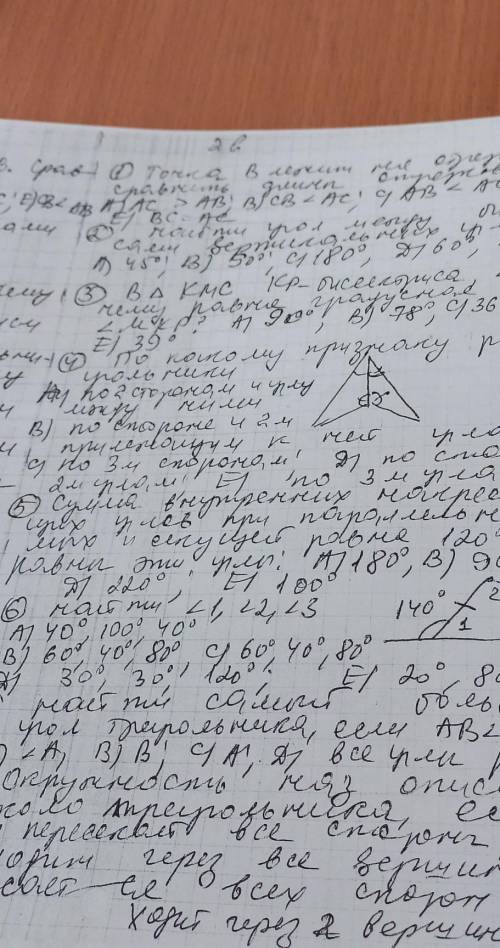 2 в
В. срав ① Точка В лежит на отрез
сравнить длины отрезков
А) АС > АВ; В) СВ < АС; С) АВ < АС
Е) ВС = АС
② найти угол между бис
сами вертикальных уг
А) 45°; В) 50°; С) 180°, Д) 60°,
③ В Δ КМС КР-биссектриса
чему равна градусная
∠МКР? А) 90°, В) 78°, С) 36
Е) 39°
④ По какому признаку р
угольники
А) по 2 сторонам и углу
между ними
В) по стороне и 2м
прилежащим к ней угла
С) по 3м сторонам, Д) по сто
2м углам, Е) по 3м угла
⑤ Сумма внутренних накрес
щих углов при параллельн
мых и секущей равна 120°
равны эти углы: А) 180°, В) 90
Д) 220°, Е) 100°
⑥ найти ∠1, ∠2, ∠3
140° 2 1
А) 40°, 100°, 40°
В) 60°, 40°, 80°, С) 60°, 40°, 80°
30°, 30°, 120°; Е) 20°, 80
найти самый боль
угол треугольника, если АВ<
∠А, В) В, С) А, Д) все углы р
окружность наз опис
около треугольника, ес
пересекает все стороны
ходит через все верши
всех сторон
ходит через 2 вершин